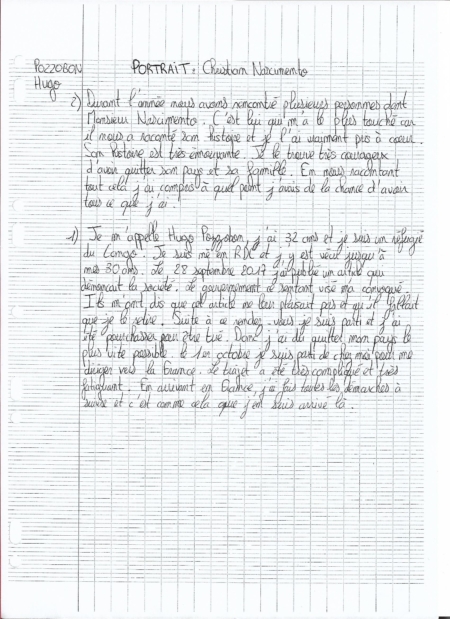 POZZOBON PORTRAIT : Christian Nascimento
Hugo
2) Durant l'année nous avons rencontré plusieurs personnes dont
Monsieur Nascimento. C'est lui qui m'a le plus touché car
il nous a raconté son histoire et je l'ai vraiment pris à coeur.
Son histoire est très émouvante. Je le trouve très courageux
d'avoir quitter son pays et sa famille. En nous racontant
tout cela j'ai compris à quel point j'avais de la chance d'avoir
tous ce que j'ai !
1) Je m'appelle Hugo Pozzobon, j'ai 32 ans et je suis un réfugié
du Congo. Je suis né en RDC et j'y est vécu jusqu'à
mes 30 ans. Le 28 septembre 2017 j'ai publié un article qui
dénonçait la société. Le gouvernement se sentant visé m'a convoqué.
Ils m'ont dis que cet article ne leur plaisait pas et qu'il fallait
que je le retire. Suite à ce rendez-vous je suis parti et j'ai
été pourchasser pour être tué. Donc j'ai du quitter mon pays le
plus vite possible. Le 1er octobre je suis parti de chez moi pour me
diriger vers la France. Le trajet a été très compliqué et très
fatiguant. En arrivant en France, j'ai fais toutes les démarches à
suivre et c'est comme cela que j'en suis arrivé là.